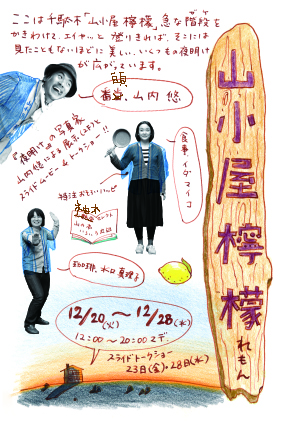 ここは千駄木「山小屋 檸檬」急な階段を
かきわけて、エイヤッと登りきれば、そこには
見たこともないほどに美しい、いくつもの夜明け
が広がっています。
山内 悠
『夜明け』の写真家
山内悠による展示と
スライドムービー&トークショー!!
食事、イダマイコ
珈琲、水口真理子
12/20(火)〜12/28(水)
12:00〜20:00マデ
スライドトークショー
23日(金)、28日(水)
山小屋檸檬
れもん